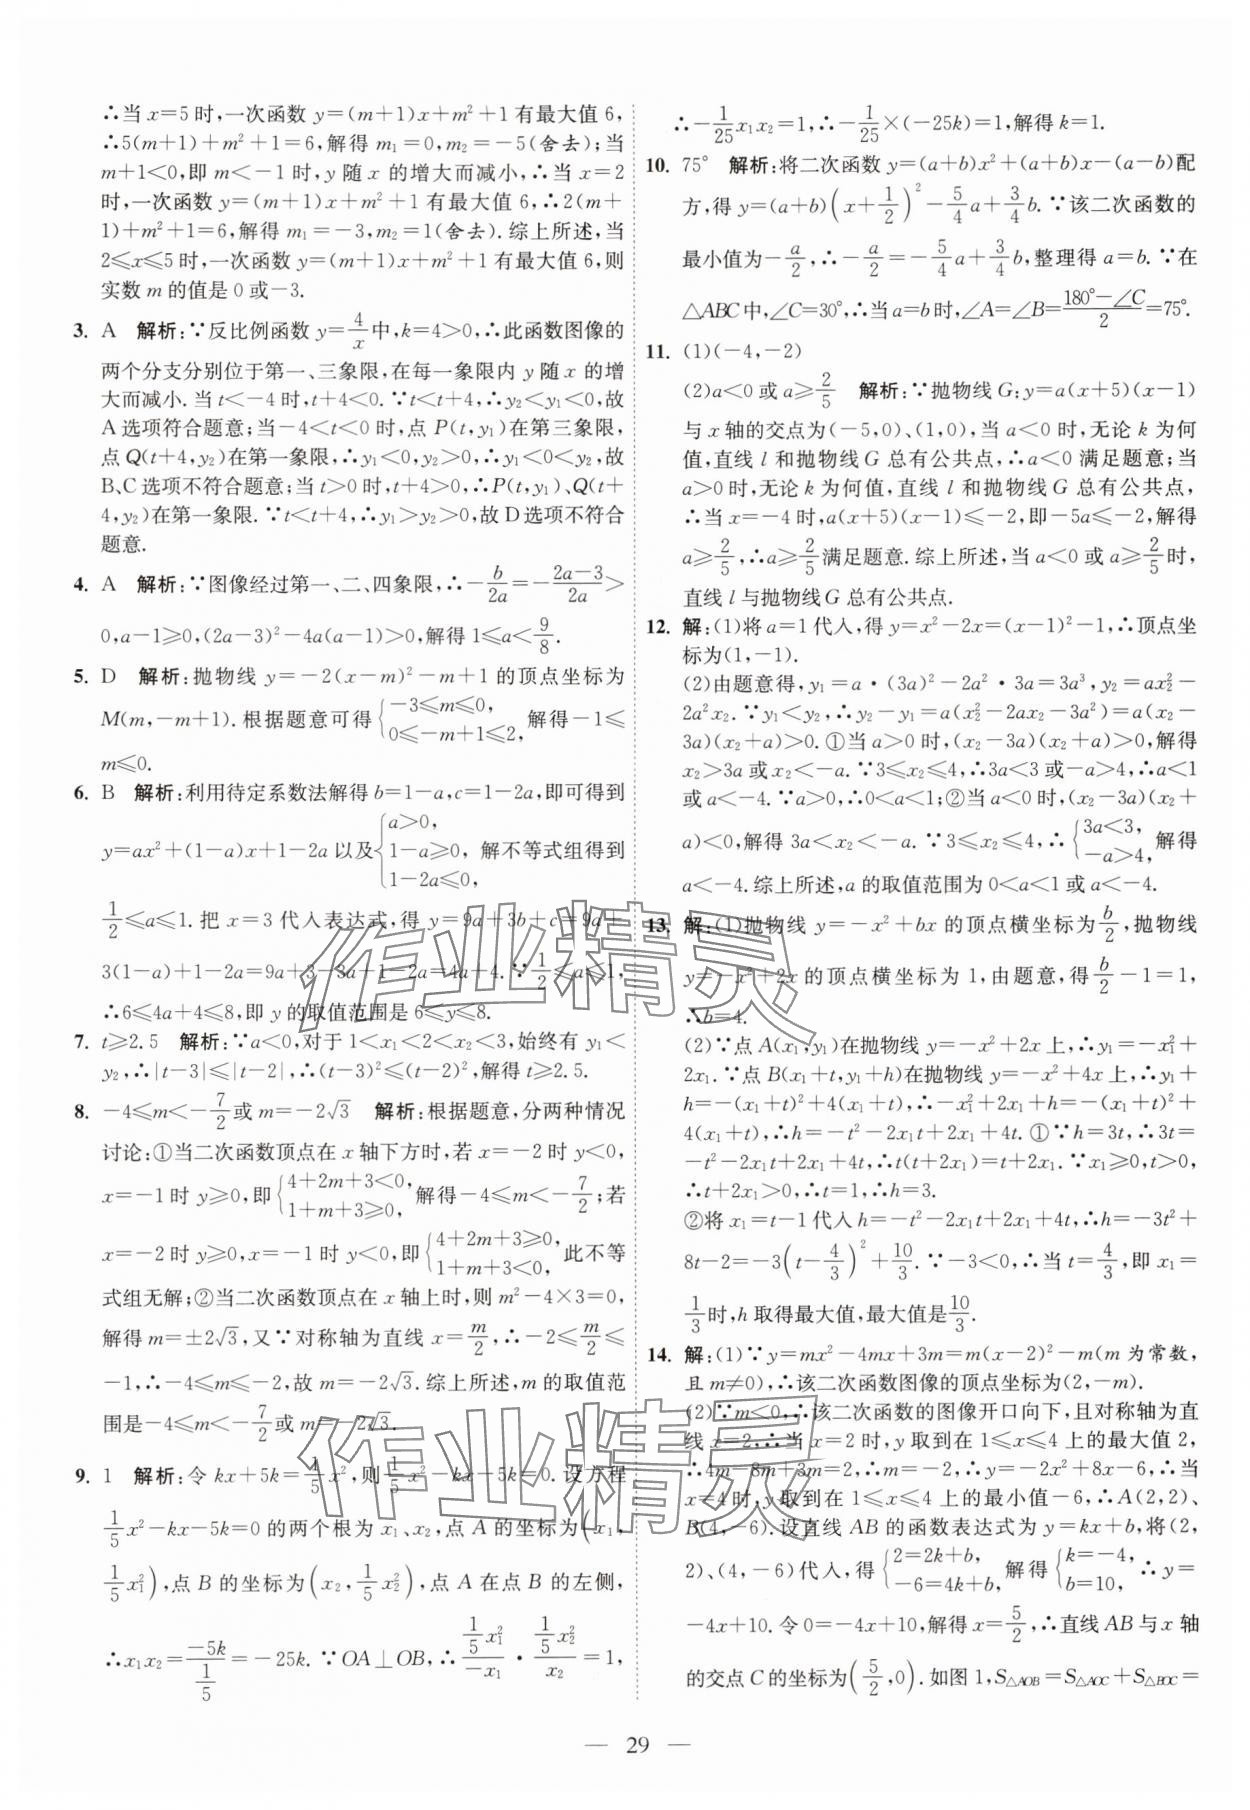 ∴当 x=5 时,一次函数 y=(m+1)x+m²+1 有最大值 6,
∴5(m+1)+m²+1=6,解得 m₁=0,m₂=-5(舍去);当
m+1<0,即 m<-1 时,y 随 x 的增大而减小,∴当 x=2
时,一次函数 y=(m+1)x+m²+1 有最大值 6,∴2(m+
1)+m²+1=6,解得 m₁=-3,m₂=1(舍去).综上所述,当
2≤x≤5 时,一次函数 y=(m+1)x+m²+1 有最大值 6,则
实数 m 的值是 0 或-3.
3. A 解析:∵反比例函数 y=4/x 中,k=4>0,∴此函数图像的
两个分支分别位于第一、三象限,在每一象限内 y 随 x 的增
大而减小.当 t<-4 时,t+4<0.∵t<t+4,∴y₂<y₁<0,故
A 选项符合题意;当-4<t<0 时,点 P(t,y₁)在第三象限,
点 Q(t+4,y₂)在第一象限,∴y₁<0,y₂>0,∴y₁<0<y₂,故
B、C 选项不符合题意;当 t>0 时,t+4>0,∴P(t,y₁)、Q(t+
4,y₂)在第一象限.∵t<t+4,∴y₁>y₂>0,故 D 选项不符合
题意.
4. A 解析:∵图像经过第一、二、四象限,∴-b/2a=-(2a-3)/2a>
0,a-1≥0,(2a-3)²-4a(a-1)>0,解得 1≤a<9/8.
5. D 解析:抛物线 y=-2(x-m)²-m+1 的顶点坐标为
M(m,-m+1).根据题意可得{-3≤m≤0, 0≤-m+1≤2, 解得-1≤
m≤0.
6. B 解析:利用待定系数法解得 b=1-a,c=1-2a,即可得到
y=ax²+(1-a)x+1-2a 以及{a>0, 1-a≥0, 1-2a≤0, 解不等式组得到
1/2≤a≤1.把 x=3 代入表达式,得 y=9a+3b+c=9a+
3(1-a)+1-2a=9a+3-3a+1-2a=4a+4.∵1/2≤a≤1,
∴6≤4a+4≤8,即 y 的取值范围是 6≤y≤8.
7. t≥2.5 解析:∵a<0,对于 1<x₁<2<x₂<3,始终有 y₁<
y₂,∴|t-3|≤|t-2|,∴(t-3)²≤(t-2)²,解得 t≥2.5.
8. -4≤m<-7/2 或 m=-2√3 解析:根据题意,分两种情况
讨论:①当二次函数顶点在 x 轴下方时,若 x=-2 时 y<0,
x=-1 时 y≥0,即{4+2m+3<0, 1+m+3≥0, 解得-4≤m<-7/2;若
x=-2 时 y≥0,x=-1 时 y<0,即{4+2m+3≥0, 1+m+3<0, 此不等
式组无解;②当二次函数顶点在 x 轴上时,则 m²-4×3=0,
解得 m=±2√3,又∵对称轴为直线 x=m/2,∴-2≤m/2≤
-1,∴-4≤m≤-2,故 m=-2√3.综上所述,m 的取值范
围是-4≤m<-7/2 或 m=-2√3.
9. 1 解析:令 kx+5k=1/5 x²,则 1/5 x²-kx-5k=0.设方程
1/5 x²-kx-5k=0 的两个根为 x₁、x₂,点 A 的坐标为(x₁,
1/5 x₁²),点 B 的坐标为(x₂,1/5 x₂²),点 A 在点 B 的左侧,
∴x₁x₂=(-5k)/(1/5)=-25k.∵OA⊥OB,∴(1/5 x₁²)/(-x₁)·(1/5 x₂²)/x₂=1,
∴-1/25 x₁x₂=1,∴-1/25×(-25k)=1,解得 k=1.
10. 75° 解析:将二次函数 y=(a+b)x²+(a+b)x-(a-b)配
方,得 y=(a+b)(x+1/2)²-5/4 a+3/4 b.∵该二次函数的
最小值为-a/2,∴-a/2=-5/4 a+3/4 b,整理得 a=b.∵在
△ABC 中,∠C=30°,∴当 a=b 时,∠A=∠B=(180°-∠C)/2=75°.
11. (1)(-4,-2)
(2)a<0 或 a≥2/5 解析:∵抛物线 G:y=a(x+5)(x-1)
与 x 轴的交点为(-5,0)、(1,0),当 a<0 时,无论 k 为何
值,直线 l 和抛物线 G 总有公共点,∴a<0 满足题意;当
a>0 时,无论 k 为何值,直线 l 和抛物线 G 总有公共点,
∴当 x=-4 时,a(x+5)(x-1)≤-2,即-5a≤-2,解得
a≥2/5,∴a≥2/5 满足题意.综上所述,当 a<0 或 a≥2/5 时,
直线 l 与抛物线 G 总有公共点.
12. 解:(1)将 a=1 代入,得 y=x²-2x=(x-1)²-1,∴顶点坐
标为(1,-1).
(2)由题意得,y₁=a·(3a)²-2a²·3a=3a³,y₂=ax₂²-
2a²x₂.∵y₁<y₂,∴y₂-y₁=a(x₂²-2ax₂-3a²)=a(x₂-
3a)(x₂+a)>0.①当 a>0 时,(x₂-3a)(x₂+a)>0,解得
x₂>3a 或 x₂<-a.∵3≤x₂≤4,∴3a<3 或-a>4,∴a<1
或 a<-4.∵a>0,∴0<a<1;②当 a<0 时,(x₂-3a)(x₂+
a)<0,解得 3a<x₂<-a.∵3≤x₂≤4,∴{3a<3, -a>4, 解得
a<-4.综上所述,a 的取值范围为 0<a<1 或 a<-4.
13. 解:(1)抛物线 y=-x²+bx 的顶点横坐标为 b/2,抛物线
y=-x²+2x 的顶点横坐标为 1,由题意,得 b/2-1=1,
∴b=4.
(2)∵点 A(x₁,y₁)在抛物线 y=-x²+2x 上,∴y₁=-x₁²+
2x₁.∵点 B(x₁+t,y₁+h)在抛物线 y=-x²+4x 上,∴y₁+
h=-(x₁+t)²+4(x₁+t),∴-x₁²+2x₁+h=-(x₁+t)²+
4(x₁+t),∴h=-t²-2x₁t+2x₁+4t.①∵h=3t,∴3t=
-t²-2x₁t+2x₁+4t,∴t(t+2x₁)=t+2x₁.∵x₁≥0,t>0,
∴t+2x₁>0,∴t=1,∴h=3.
②将 x₁=t-1 代入 h=-t²-2x₁t+2x₁+4t,∴h=-3t²+
8t-2=-3(t-4/3)²+10/3.∵-3<0,∴当 t=4/3,即 x₁=
1/3 时,h 取得最大值,最大值是 10/3.
14. 解:(1)∵y=mx²-4mx+3m=m(x-2)²-m(m 为常数,
且 m≠0),∴该二次函数图像的顶点坐标为(2,-m).
(2)∵m<0,∴该二次函数的图像开口向下,且对称轴为直
线 x=2,∴当 x=2 时,y 取到在 1≤x≤4 上的最大值 2,
∴4m-8m+3m=2,∴m=-2,∴y=-2x²+8x-6,∴当
x=4 时,y 取到在 1≤x≤4 上的最小值-6,∴A(2,2)、
B(4,-6).设直线 AB 的函数表达式为 y=kx+b,将(2,
2)、(4,-6)代入,得{2=2k+b, -6=4k+b, 解得{k=-4, b=10, ∴y=
-4x+10.令 0=-4x+10,解得 x=5/2,∴直线 AB 与 x 轴
的交点 C 的坐标为(5/2,0).如图 1,S△AOB=S△AOC+S△BOC=
— 29 —
作业精灵
作业精灵